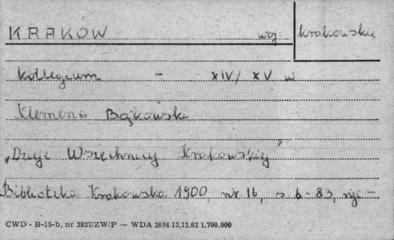 KRAKÓW woj. krakowskie
Kollegium - XIV/XV w
Klemens Bąkowski
"Dzieje Wszechnicy Krakowskiej"
Biblioteka Krakowska 1900, nr 16, s 6-83, ryc -
CWD - B-15-b, nr 2827/ZW/P — WDA 2694 12.12.62 1.700.000